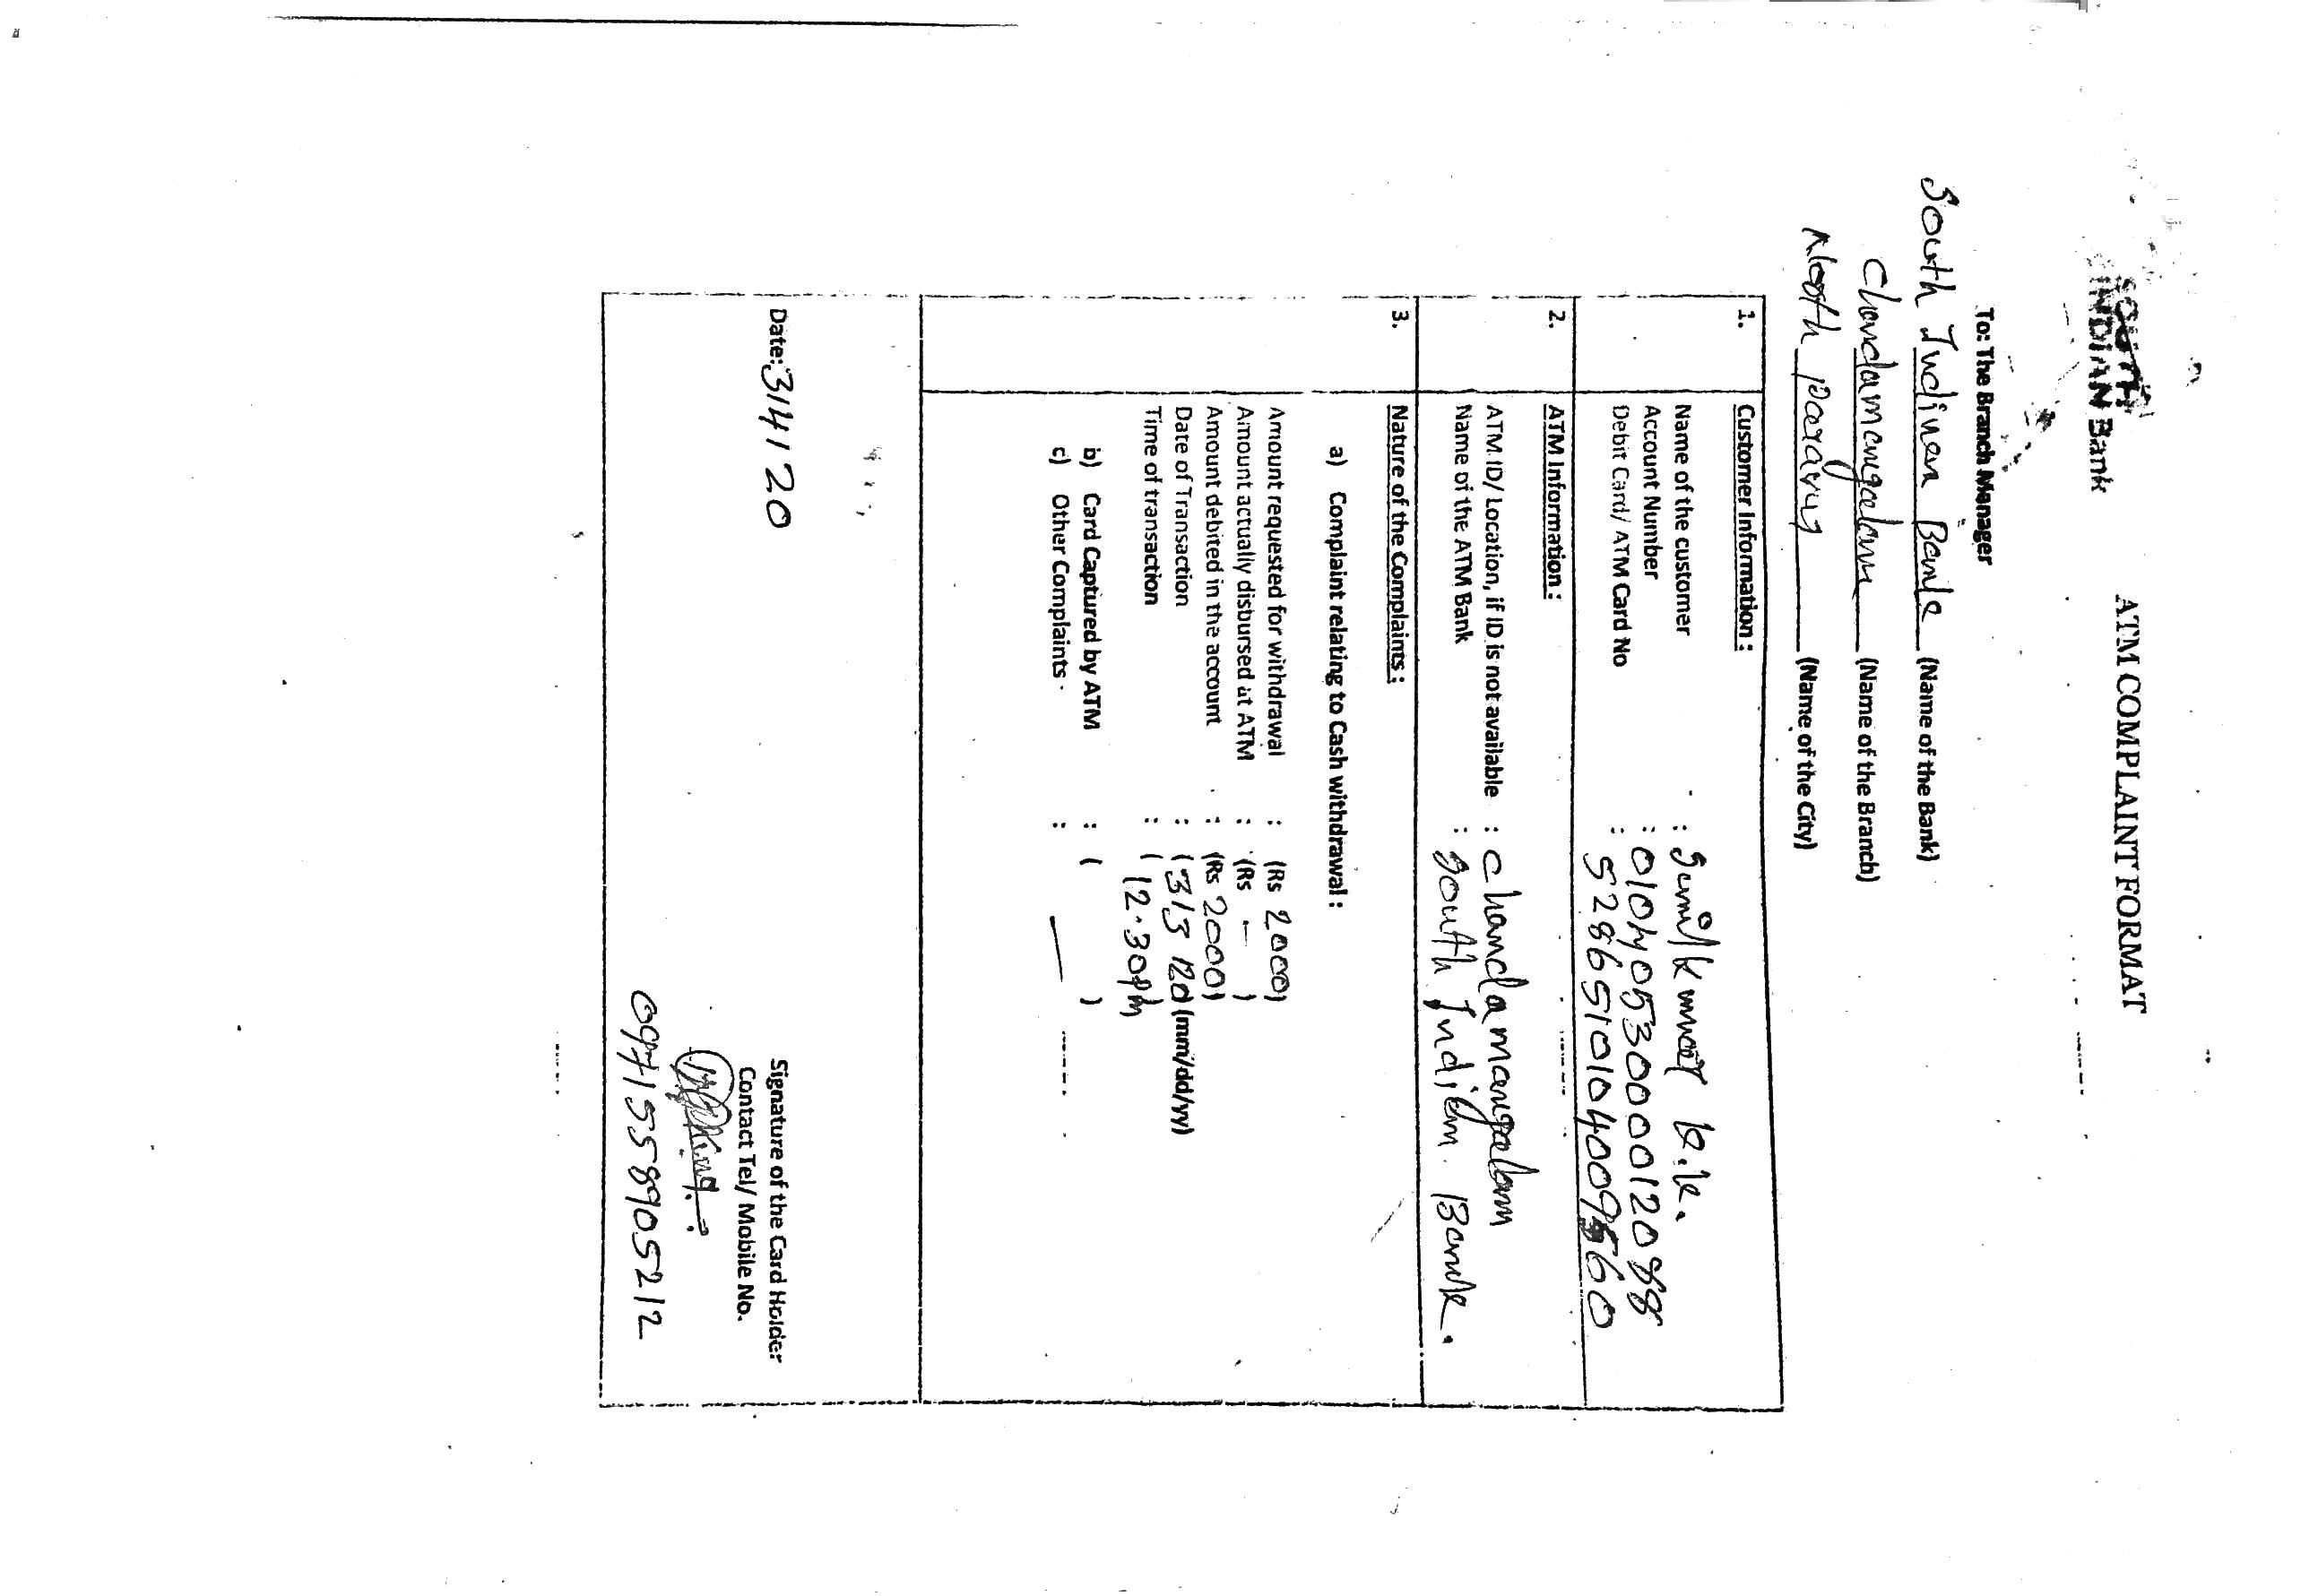 SOUTH
INDIAN Bank
ATM COMPLAINT FORMAT
To: The Branch Manager
South Indian Bank (Name of the Bank)
Chendamangalam (Name of the Branch)
North paravur (Name of the City)
1. Customer Information :
Name of the customer : Sunilkumar K.K.
Account Number : 0104053000012088
Debit Card/ ATM Card No : 5286510104009560
2. ATM Information :
ATM ID/ Location, if ID is not available : chandamangalam
Name of the ATM Bank : South Indian Bank.
3. Nature of the Complaints :
a) Complaint relating to Cash withdrawal :
Amount requested for withdrawal : (Rs 2000)
Amount actually disbursed at ATM : (Rs — )
Amount debited in the account : (Rs 2000)
Date of Transaction : (31/3/20) (mm/dd/yy)
Time of transaction : (12.30pm
b) Card Captured by ATM : ( )
c) Other Complaints : —
Date: 3/4/20
Signature of the Card Holder
Contact Tel/ Mobile No.
0971558905212